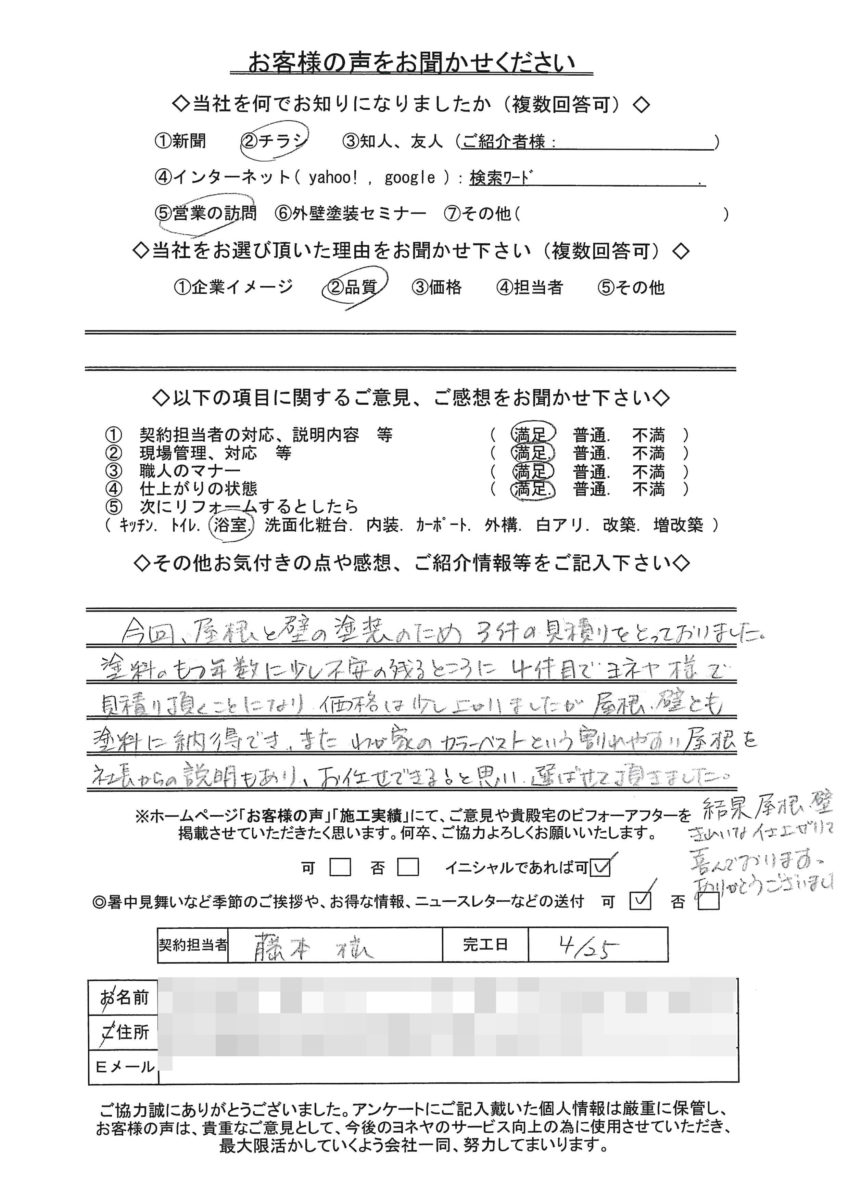 お客様の声をお聞かせください
◇当社を何でお知りになりましたか（複数回答可）◇
①新聞 ②チラシ ③知人、友人（ご紹介者様： ）
④インターネット( yahoo! , google )：検索ワード .
⑤営業の訪問 ⑥外壁塗装セミナー ⑦その他( )
◇当社をお選び頂いた理由をお聞かせ下さい（複数回答可）◇
①企業イメージ ②品質 ③価格 ④担当者 ⑤その他
◇以下の項目に関するご意見、ご感想をお聞かせ下さい◇
① 契約担当者の対応、説明内容 等 ( 満足. 普通. 不満 )
② 現場管理、対応 等 ( 満足. 普通. 不満 )
③ 職人のマナー ( 満足. 普通. 不満 )
④ 仕上がりの状態 ( 満足. 普通. 不満 )
⑤ 次にリフォームするとしたら
( キッチン. トイレ. 浴室. 洗面化粧台. 内装. カーポート. 外構. 白アリ. 改築. 増改築 )
◇その他お気付きの点や感想、ご紹介情報等をご記入下さい◇
今回、屋根と壁の塗装のため 3件の見積りをとっておりました。
塗料のもつ年数に少し不安の残るところに 4件目でヨネヤ様で
見積り頂くことになり 価格は少し上がりましたが 屋根、壁とも
塗料に納得でき、また わが家のカラーベストという割れやすい屋根を
社長からの説明もあり、お任せできると思い 選ばせて頂きました。
結果 屋根、壁
きれいな仕上がりで
喜んでおります。
ありがとうございまし
※ホームページ「お客様の声」「施工実績」にて、ご意見や貴殿宅のビフォーアフターを
掲載させていただきたく思います。何卒、ご協力よろしくお願いいたします。
可 □ 否 □ イニシャルであれば可☑
◎暑中見舞いなど季節のご挨拶や、お得な情報、ニュースレターなどの送付 可 ☑ 否 □
契約担当者 藤本 様 完工日 4/25
お名前
ご住所
Eメール
ご協力誠にありがとうございました。アンケートにご記入戴いた個人情報は厳重に保管し、
お客様の声は、貴重なご意見として、今後のヨネヤのサービス向上の為に使用させていただき、
最大限活かしていくよう会社一同、努力してまいります。